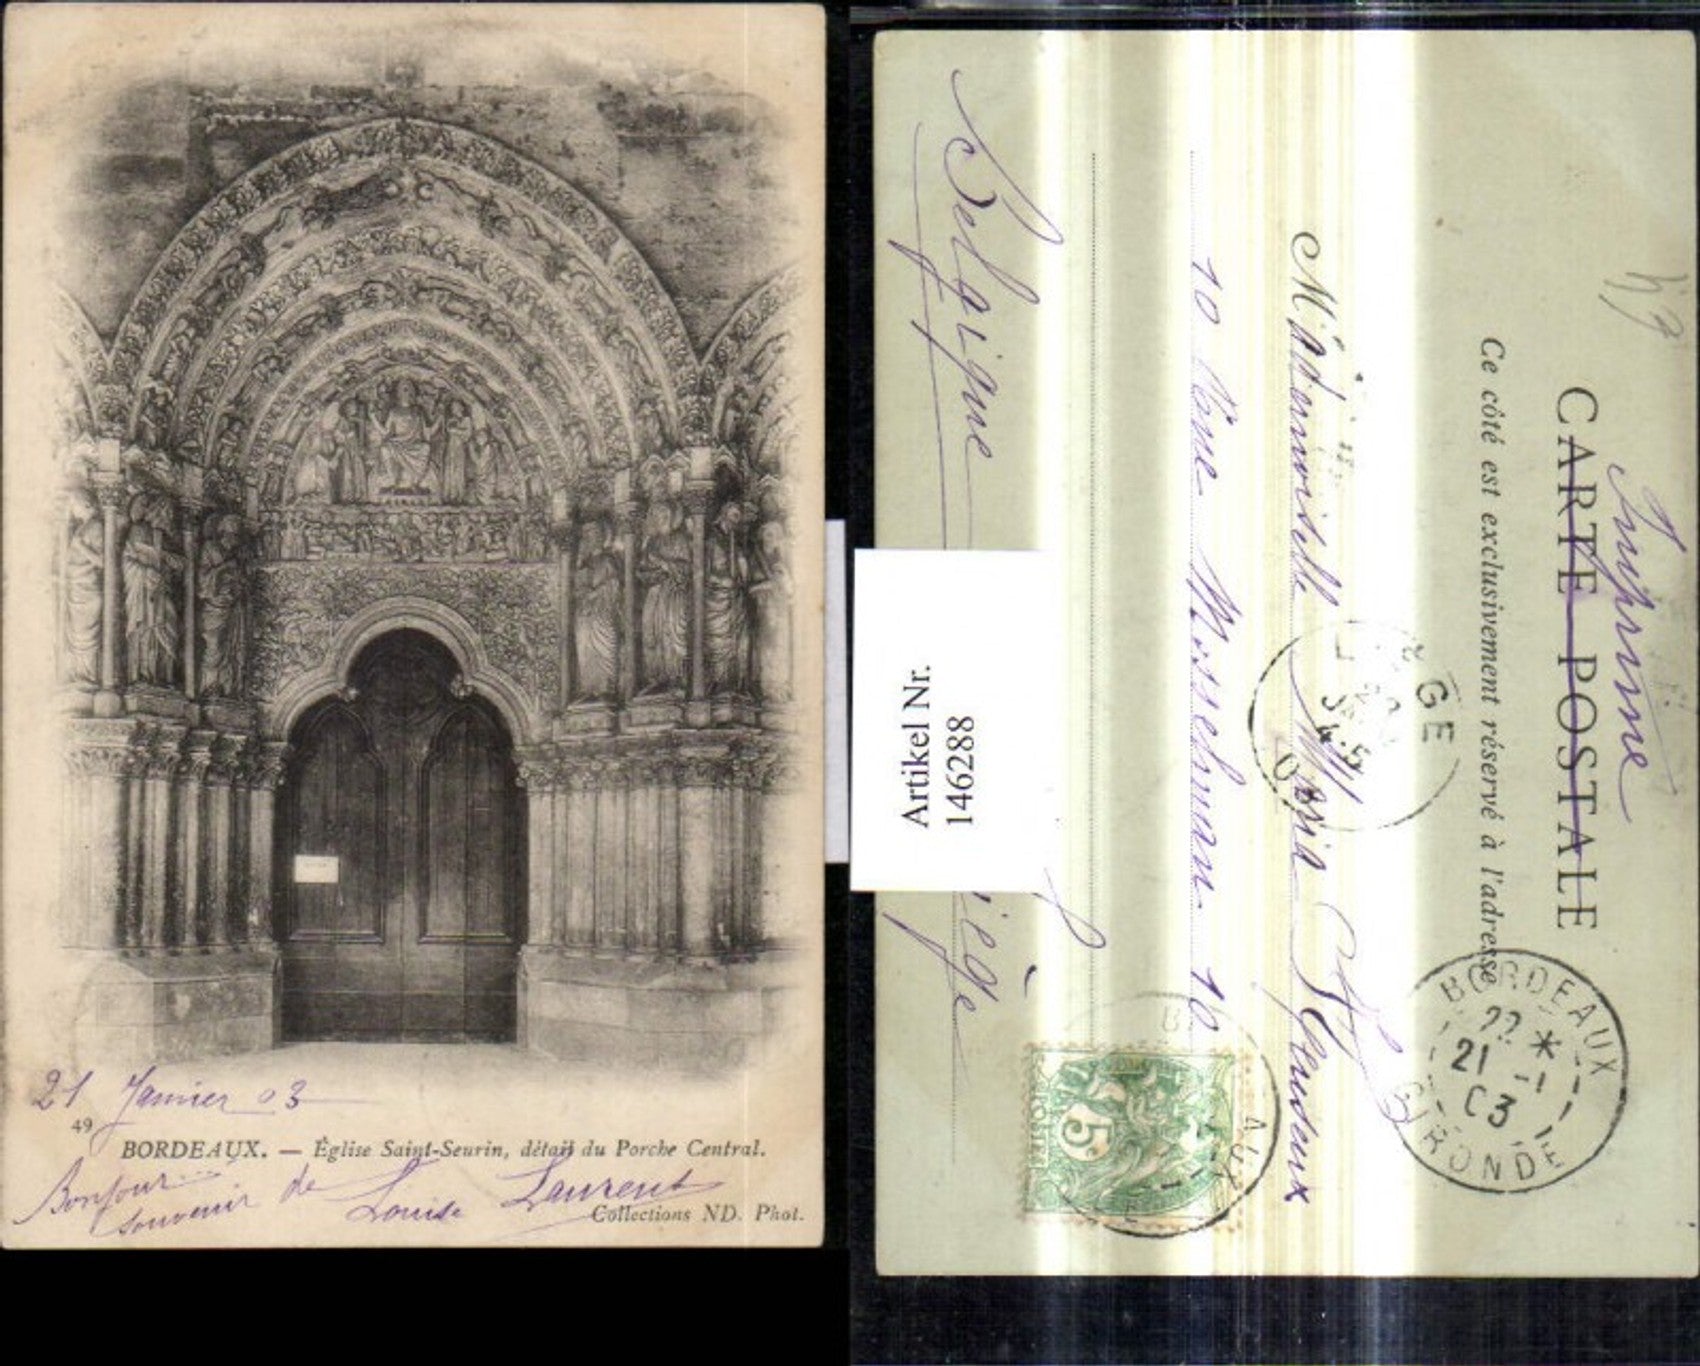 21 Janvier 03
49
BORDEAUX. — Église Saint-Seurin, détail du Porche Central.
Bonjour
Souvenir de Louise Laurent
Collections ND. Phot.
Imprimé
CARTE POSTALE
Ce côté est exclusivement réservé à l'adresse
Mademoiselle Maria
10 10
Belgique
Artikel Nr.
146288
BORDEAUX
22 *
21 -1
03
GIRONDE
5c